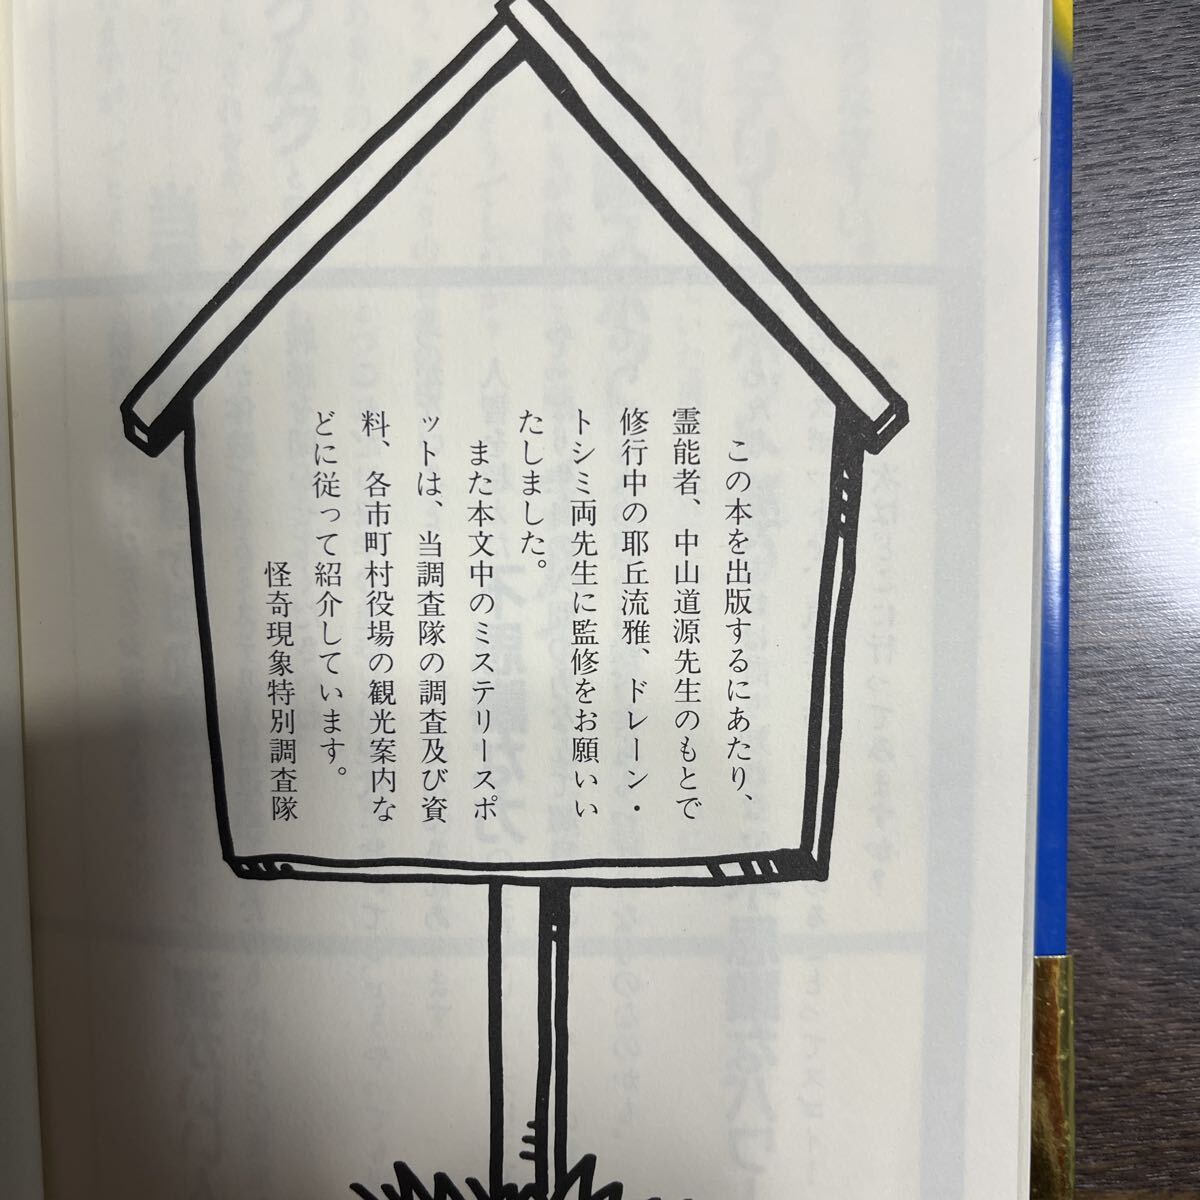 この本を出版するにあたり、
霊能者、中山道源先生のもとで
修行中の耶丘流雅、ドレーン・
トシミ両先生に監修をお願いい
たしました。
また本文中のミステリースポ
ットは、当調査隊の調査及び資
料、各市町村役場の観光案内な
どに従って紹介しています。
怪奇現象特別調査隊